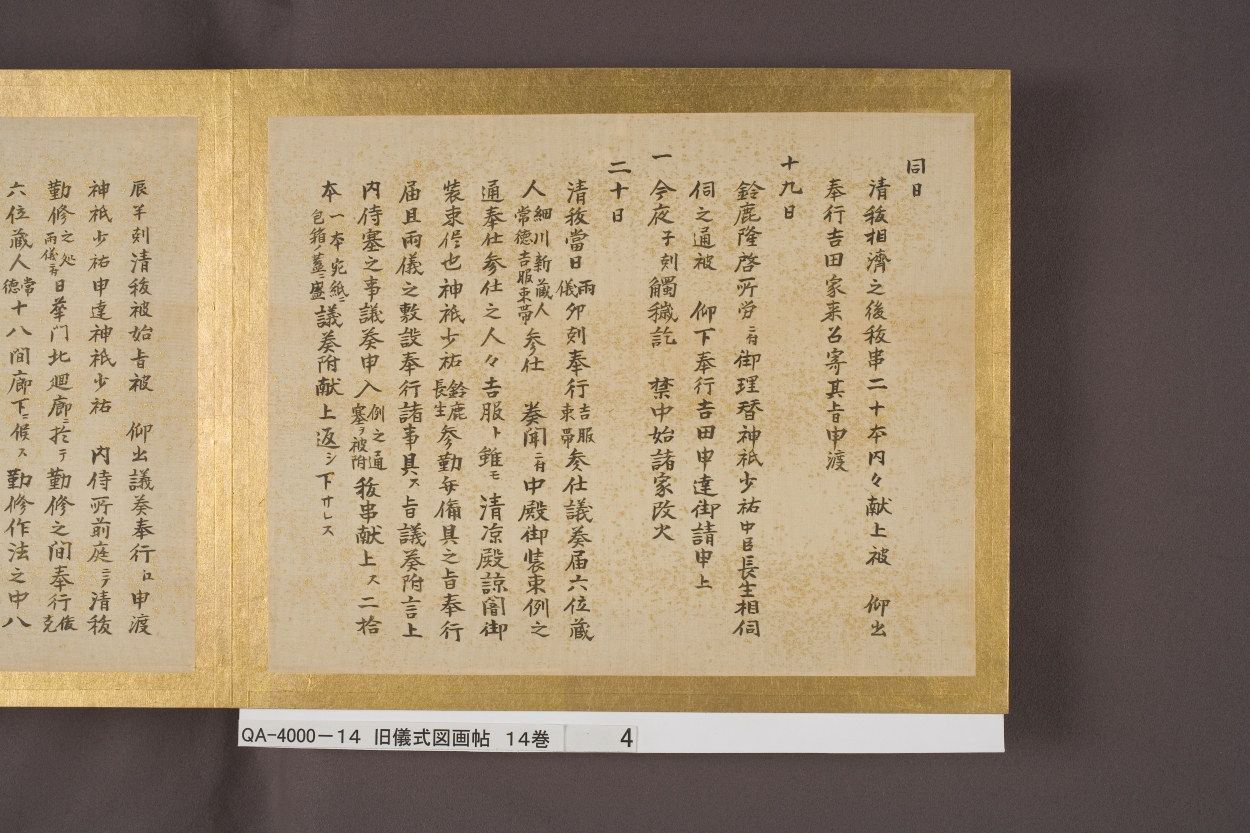 同日
清秡相濟之後秡串二十本内々献上被　仰出
奉行吉田家来召寄其旨申渡
十九日
鈴鹿隆啓所労ニ付御理替神祇少祐中臣長生相伺
伺之通被　仰下奉行吉田申達御請申上
一今夜子刻觸穢訖　禁中始諸家改火
二十日
清秡當日両儀卯刻奉行吉服束帶参仕議奏届六位蔵
人細川新蔵人常德吉服束帶参仕　奏聞ニ付中殿御装束例之
通奉仕参仕之人々吉服ト雖モ清凉殿諒闇御
装束侭也神祇少祐鈴鹿長生参勤毎備具之旨奉行
届且両儀之敷設奉行諸事具ス旨議奏附言上
内侍塞之事議奏申入例之通塞ヲ被附秡串献上ス二拾
本一本宛紙ニ包箱ノ蓋ニ盛議奏附献上返シ下サレス
辰半刻清秡被始旨被　仰出議奏奉行江申渡
神祇少祐申達神祇少祐　内侍所前庭ニテ清秡
勤修之処両儀ニ日華门北廻廊ニ於テ勤修之間奉行俊克
六位蔵人常德十八間廊下ニ候ス勤修作法之中八
QA-4000－14　旧儀式図画帖　14巻　4